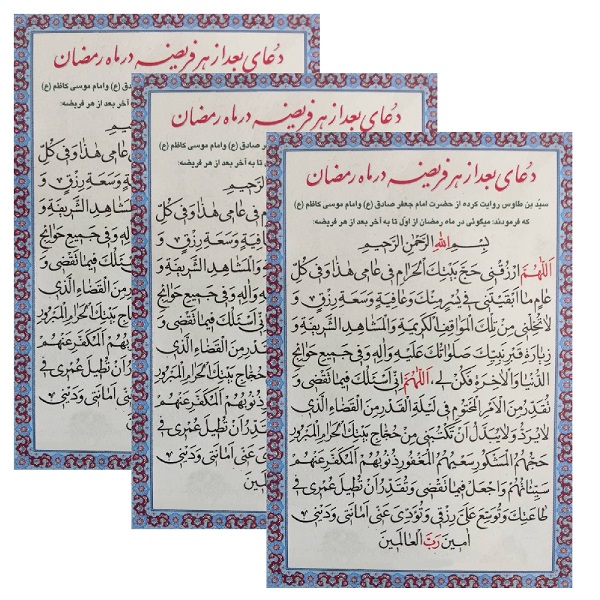 دعای بعد از هر فریضه در ماه رمضان
سیّد بن طاوس روایت کرده از حضرت امام جعفر صادق (ع) وامام موسی کاظم (ع)
که فرمودند: میگوئی در ماه رمضان از اوّل تا به آخر بعد از هر فریضه:
بِسْمِ اللهِ الرَّحْمٰنِ الرَّحیمِ
اَللّٰهُمَّ ارْزُقْنی حَجَّ بَیْتِكَ الْحَرامِ فی عامی هٰذا وَفی كُلِّ
عامٍ ما اَبْقَیْتَنی فی یُسْرٍ مِنْكَ وَعافِیَةٍ وَسَعَةِ رِزْقٍ وَ
لا تُخْلِنی مِنْ تِلْكَ الْمَواقِفِ الْكَریمَةِ وَالْمَشاهِدِ الشَّریفَةِ وَ
زِیارَةِ قَبْرِ نَبِیِّكَ صَلَواتُكَ عَلَیْهِ وَالِهِ وَفی جَمیعِ حَوائِجِ
الدُّنْیا وَالْاٰخِرَةِ فَكُنْ لی، اَللّٰهُمَّ اِنّی اَسْئَلُكَ فیما تَقْضی وَ
تُقَدِّرُ مِنَ الْاَمْرِ الْمَحْتُومِ فی لَیْلَةِ الْقَدْرِ مِنَ الْقَضاءِ الَّذی
لا یُرَدُّ وَلا یُبَدَّلُ اَنْ تَكْتُبَنی مِنْ حُجّاجِ بَیْتِكَ الْحَرامِ الْمَبْرُورِ
حَجُّهُمُ الْمَشْكُورِ سَعْیُهُمُ الْمَغْفُورِ ذُنُوبُهُمُ الْمُكَفَّرِ عَنْهُمْ
سَیِّئاتُهُمْ وَاجْعَلْ فیما تَقْضی وَتُقَدِّرُ اَنْ تُطیلَ عُمْری فی
طاعَتِكَ وَتُوَسِّعَ عَلَیَّ رِزْقی وَتُؤَدِّیَ عَنّی اَمانَتی وَدَیْنی
اٰمینَ رَبَّ الْعالَمینَ